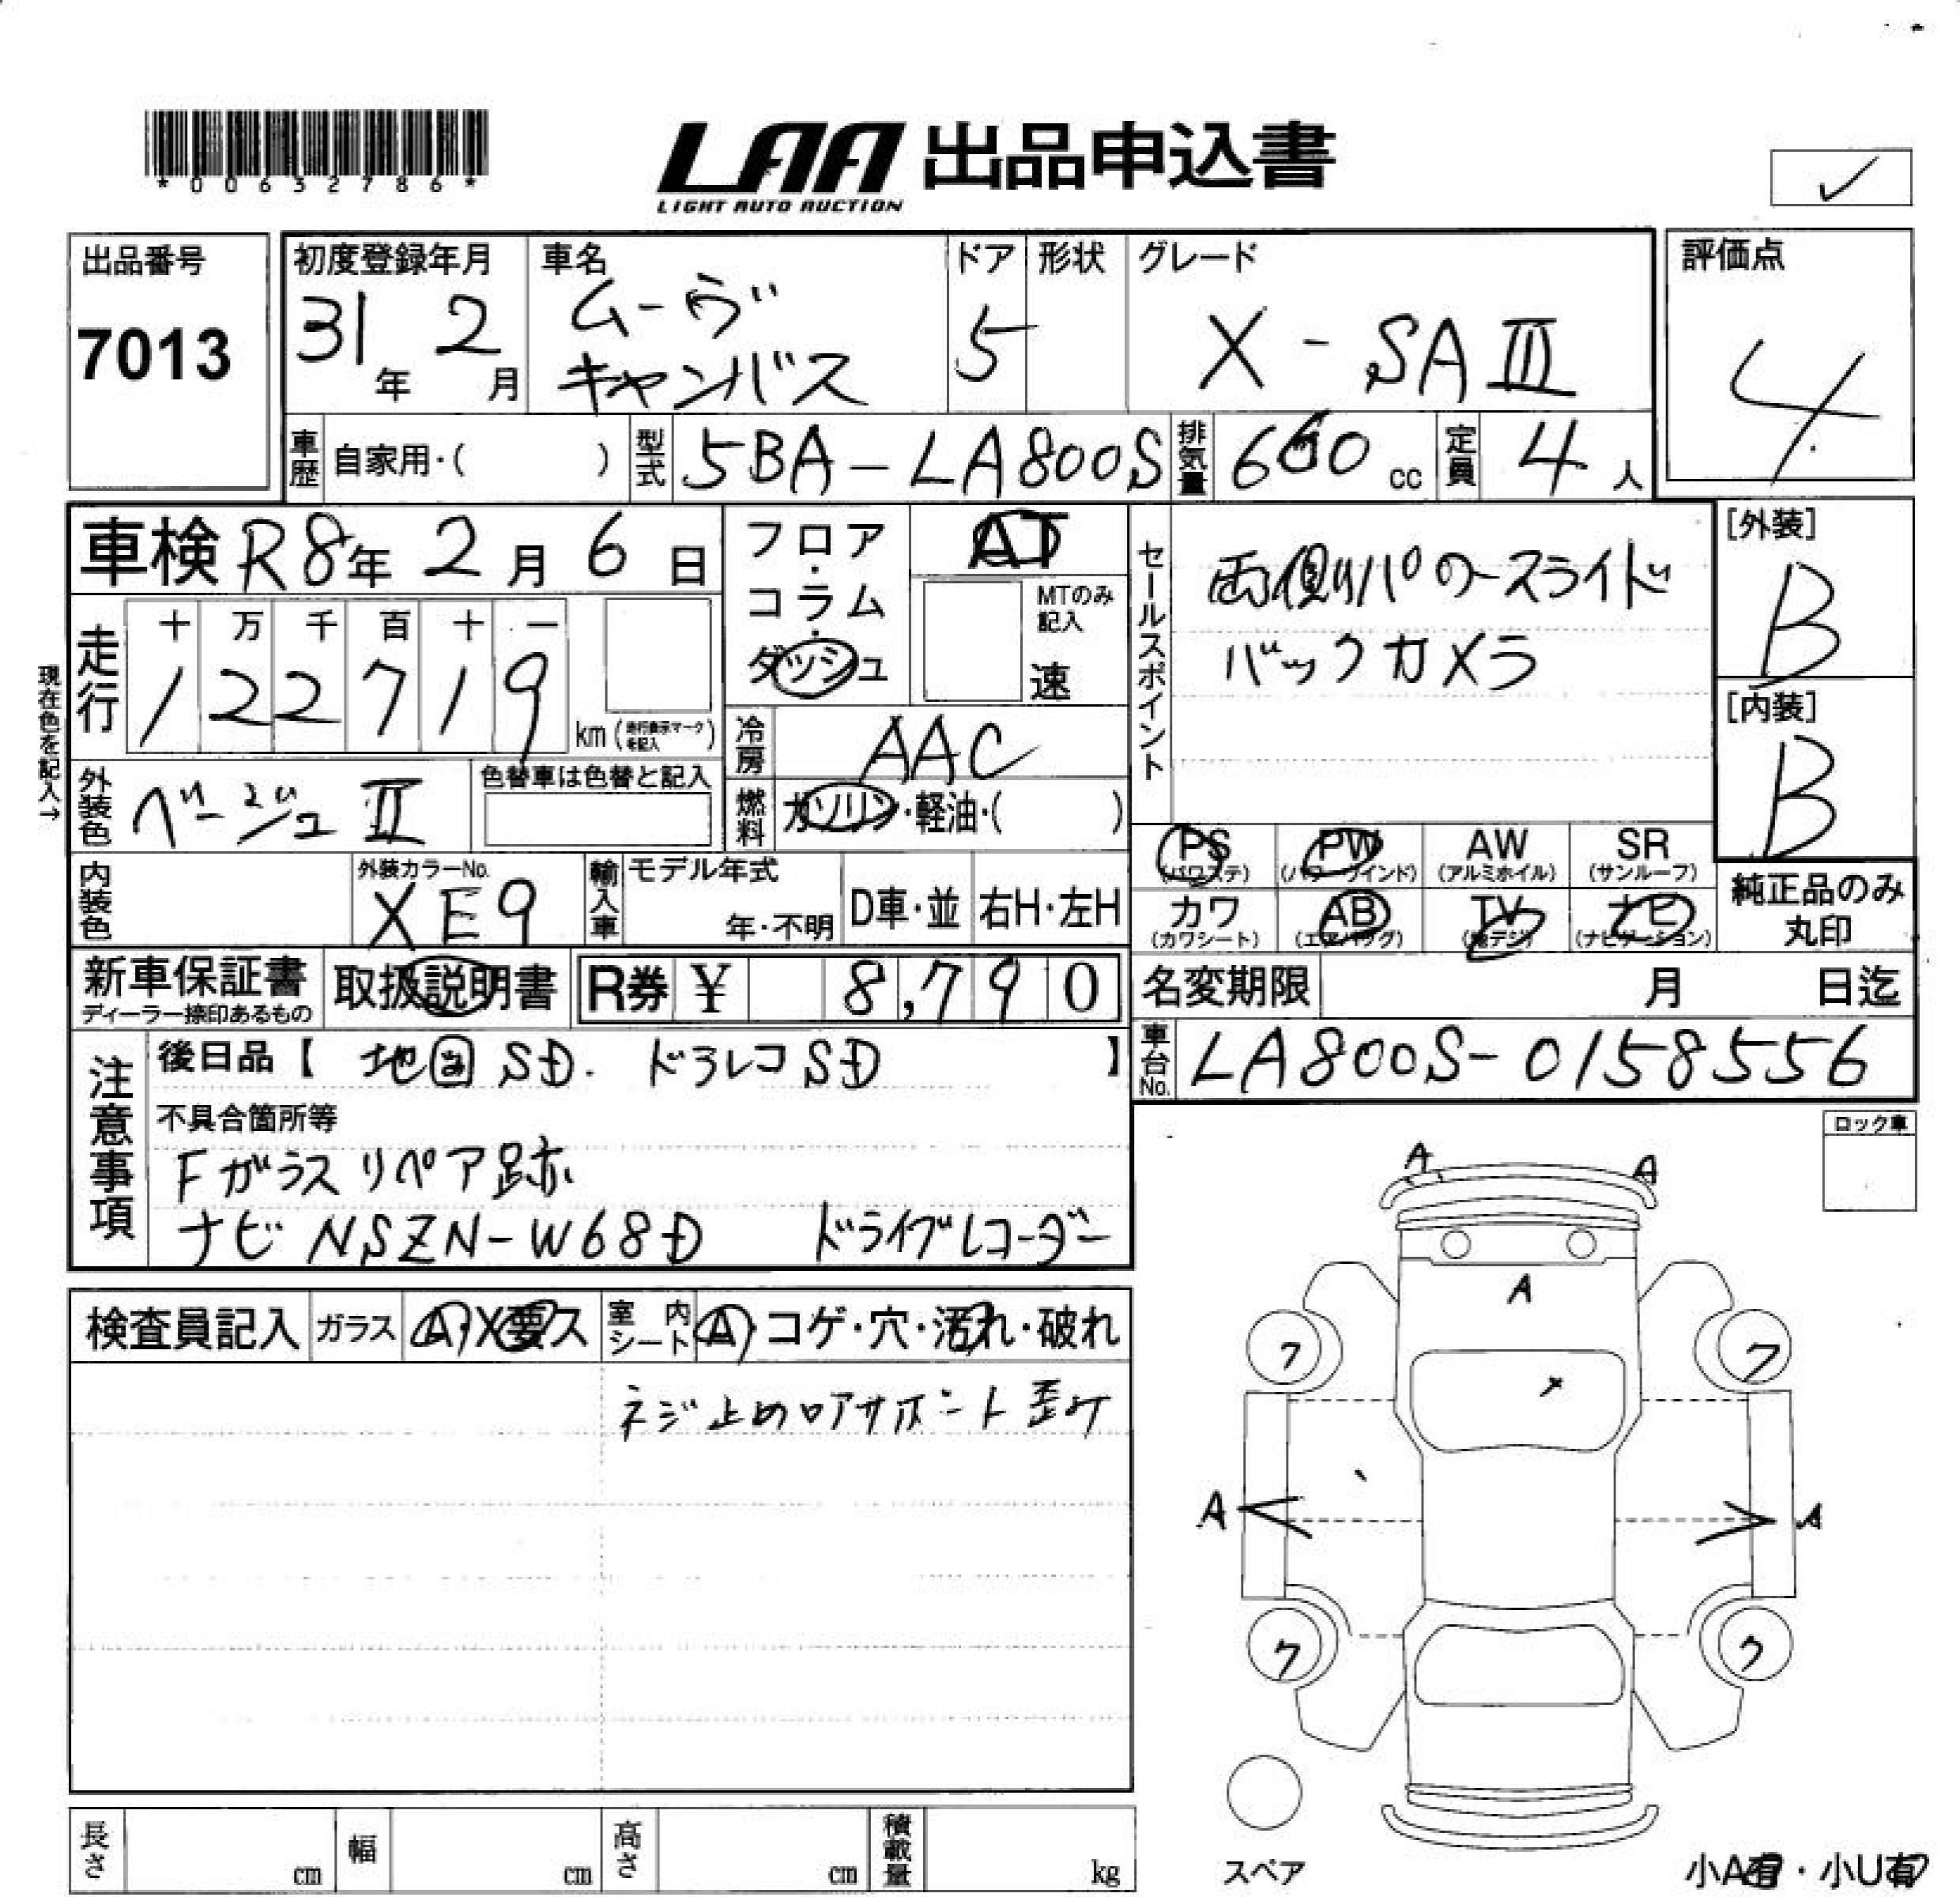 *00632786*
LAA 出品申込書
LIGHT AUTO AUCTION
✓
出品番号
7013
初度登録年月
31年 2月
車名
ムーヴ
キャンバス
ドア
5
形状
グレード
X-SAⅢ
評価点
4
車歴 自家用・( )
型式 5BA-LA800S
排気量 660 cc
定員 4 人
車検 R8年 2月 6日
フロア・コラム・ダッシュ
AT
MTのみ記入
速
セールスポイント
両側パワースライド
バックカメラ
[外装]
B
[内装]
B
現在色を記入→
走行
十 万 千 百 十 一
1 2 2 7 1 9
km (走行表示マークを記入)
冷房 AAC
外装色 ベージュⅡ
色替車は色替と記入
燃料 ガソリン・軽油・( )
内装色
外装カラーNo.
XE9
輸入車
モデル年式
年・不明
D車・並
右H・左H
PS (パワステ)
PW (パワーウインド)
AW (アルミホイル)
SR (サンルーフ)
カワ (カワシート)
AB (エアバッグ)
TV (地デジ)
ナビ (ナビゲーション)
純正品のみ丸印
新車保証書
ディーラー捺印あるもの
取扱説明書
R券 ¥ 8,790
名変期限 月 日迄
車台No. LA800S-0158556
注意事項
後日品【 地図SD. ドラレコSD 】
不具合箇所等
Fガラスリペア跡
ナビ NSZN-W68D ドライブレコーダー
ロック車
検査員記入
ガラス A・X要ス
室内シート A・コゲ・穴・汚れ・破れ
ネジ止めロアサポート歪ケ
A A
A
ワ ワ
×
A A
ワ ワ
スペア
長さ cm
幅 cm
高さ cm
積載量 kg
小A有・小U有